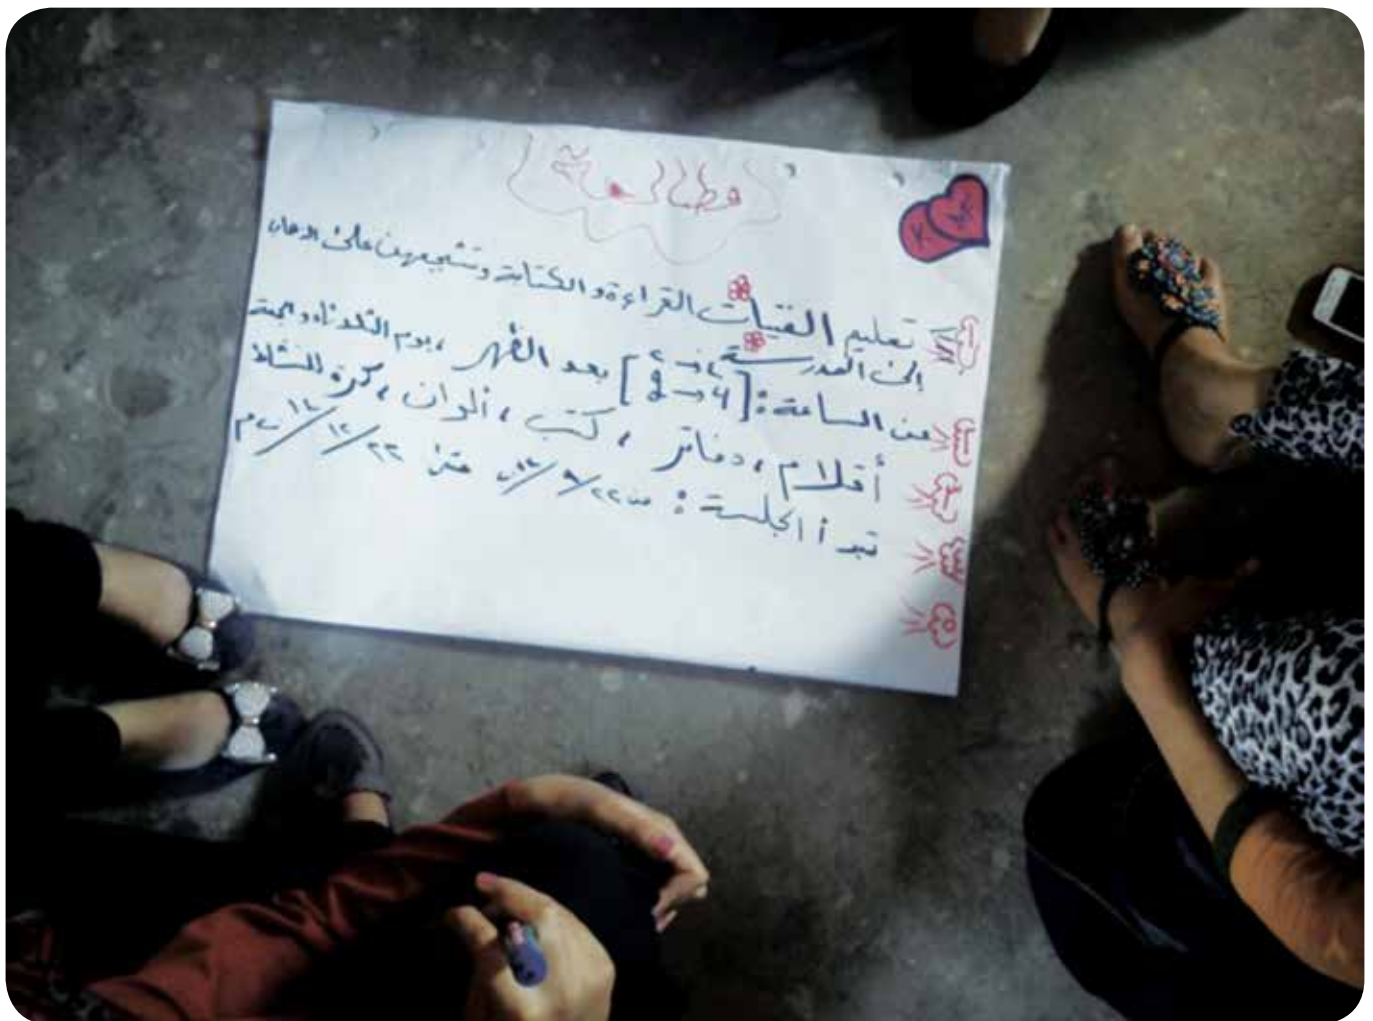 مطالعة
تعليم الفتيات القراءة و الكتابة وتشجيعهن على الذهاب
إلى المدرسة
من الساعة: [4 → 2] بعد الظهر ، يوم الثلاثاء و الجمعة
أقلام ، دفاتر ، كتب ، ألوان ، كرة النشاط
تبدأ الجلسة : من ٢٢/٩ حتى ٢٢/١٢